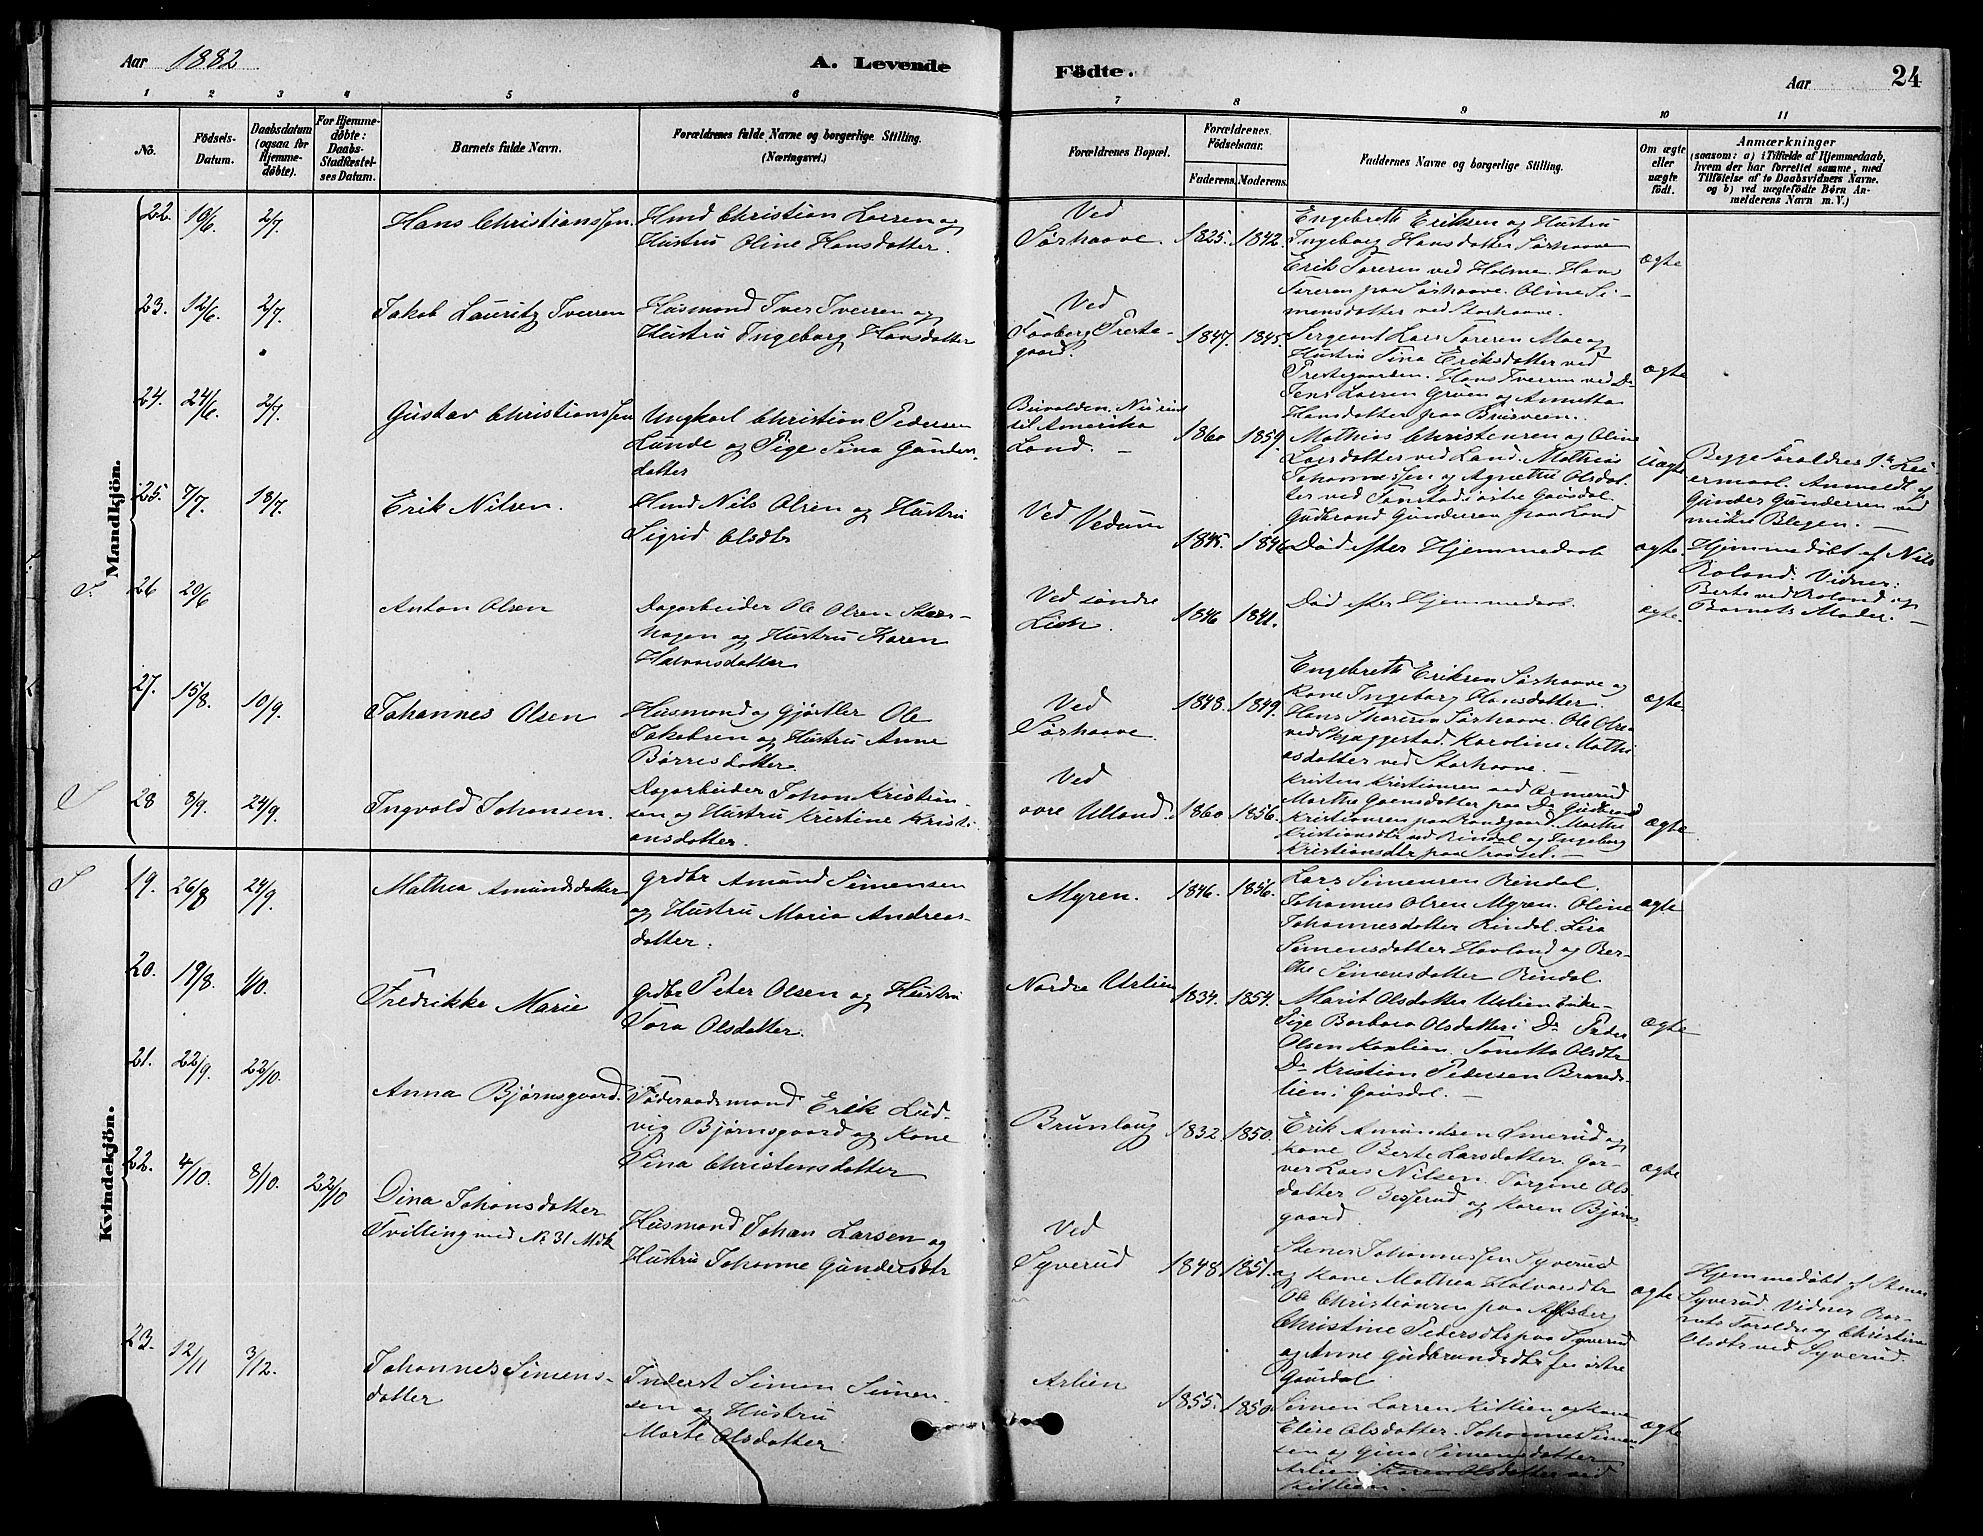 Aar 1882
A. Levende
Födte.
Aar
24
1 2 3 4 5 6 7 8 9 10 11
No.
Födsels-
Datum.
Daabsdatum
(ogsaa for
Hjemme-
döbte).
For Hjemme-
döbte:
Daabs-
Stadfæstel-
ses Datum.
Barnets fulde Navn.
Forældrenes fulde Navne og borgerlige Stilling.
(Næringsvei.)
Forældrenes Bopæl.
Forældrenes
Födselsaar.
Faderens. Moderens.
Faddernes Navne og borgerlige Stilling.
Om ægte
eller
uægte
födt.
Anmærkninger
(saasom: a) i Tilfælde af Hjemmedaab,
hvem der har forrettet samme, med
Tilföielse af to Daabsvidners Navne.
og b) ved uægtefödte Börn An-
melderens Navn m. V.)
Mandkjön.
22. 10/6 2/7
Hans Christianssen
Hmd Christian Larsen og
Hustru Oline Hansdatter.
Ved
Sørhaave.
1825. 1842.
Engebreth Eriksen og Hustru
Ingeborg Hansdatter Sørhaave
Erik Toresen ved Holme. Hans
Toresen paa Sørhaave. Oline Si-
mensdatter ved Storhaave.
ægte
23. 12/6 2/7.
Jakob Lauritz Iversen
Husmand Iver Iversen og
Hustru Ingeborg Hansdatter
Ved
Faaberg Preste-
gaard.
1847. 1845.
Sergeant Lars Toresen Moe og
Hustru Sina Eriksdatter ved
Prestegaarden. Hans Iversen ved Do
Jens Larsen Gruen og Annette
Hansdatter paa Buisveen.
ægte
24. 24/6 2/7
Gustav Christianssen
Ungkarl Christian Pedersen
Lunde og Pige Sina Gunders-
datter
til Amerika
Land.
1860 1859.
Mathias Christensen og Oline
Larsdatter ved Land. Mathias
Johannessen og Agnethe Olsdat-
ter ved Tonstad i østre Gausdal
Gudbrand Gundersen paa Land
Uægte
Begge Foraldres 1ste Lei-
ermaal. Anmeldt af
Gunder Gundersen ved
midtre Blegen.
25. 7/7. 13/7.
Erik Nilsen.
Hmd Nils Olsen og Hustru
Sigrid Olsdtr
Ved Vedum
1845. 1846
Død efter Hjemmedaab
ægte.
Hjemmedøbt af Nils
Roland. Vidner:
Berte ved Roland og
Barnets Moder.
S. 26 20/6
Anton Olsen
Dagarbeider Ole Olsen Stor-
hagen og Hustru Karen
Halvorsdatter
Ved søndre
Lien.
1846 1841.
Død efter Hjemmedaab.
ægte.
27. 15/8. 10/9.
Johannes Olsen
Husmand og Gjørtler Ole
Jakobsen og Hustru Anne
Børresdatter.
Ved
Sørhaave.
1848. 1849.
Engebreth Eriksen Sørhaave og
Kone Ingeborg Hansdatter.
Hans Thoresen Sørhaave. Ole Olsen
ved Skjæggestad. Karoline Mathi
asdatter ved Storhaave.
ægte
S 28 3/9. 24/9.
Ingvald Johansen.
Dagarbeider Johan Kristian-
sen og Hustru Kristine Kristi-
ansdatter.
Ved
øvre Ulland.
1860 1856.
Kristen Kristiansen ved Ormerud
Marthe Evensdatter paa Do Gudbrand
Kristiansen paa Randgaard. Marthe
Kristiansdtr ved Rindal og Ingeborg
Kristiansdtr paa Traasel.
ægte
Kvindekjön.
S 19. 26/8 24/9.
Mathea Amundsdatter
grdbr Amund Simensen
og Hustru Maria Andreas-
datter.
Myren.
1846. 1856.
Lars Simensen Rindal.
Johannes Olsen Myren. Oline
Johannesdatter Rindal. Lisa
Simensdatter Havland og Ber-
the Simensdatter Rindal.
ægte
20. 19/8. 1/10.
Fredrikke Marie
grdbr Peter Olsen og Hustru
Tora Olsdatter.
Nordre Urlien
1834. 1854.
Marit Olsdatter Urlien Enke
Pige Barbara Olsdatter i Do Peder
Olsen Kanlien. Tonette Olsdtr
Do Kristian Pedersen Brands-
lien i Gausdal.
ægte
21. 22/9 22/10.
Anna Bjørnsgaard.
Føderaadsmand Erik Lud-
vig Bjørnsgaard og Kone
Sina Christensdatter
Brunlaug
1832. 1850.
Erik Amundsen Smerud og
Kone Berte Larsdatter. Gar-
ver Lars Nilsen. Jørgine Ols-
datter Besserud og Karen Bjørns-
gaard
ægte
22. 4/10. 8/10. 22/10
Dina Johansdatter
Tvilling med No 31 Mdk
Husmand Johan Larsen og
Hustru Johanne Gundersdtr
Ved
Syverud
1848 1851.
Stener Johannessen Syverud
og Kone Mathea Halvorsdtr
Ole Christiansen paa
Christine Pedersdtr paa Syverud
og Anne Gudbrandsdtr fra østre
Gausdal.
ægte
Hjemmedøbt af Stener
Syverud. Vidner Bar-
nets Foraldre og Christine
Olsdtr ved Syverud.
23. 12/11 3/12.
Johannes Simens-
datter
Inderst Simon Simen-
sen og Hustru
Marte Olsdatter
Arlien
1855. 1850.
Simen Larsen Kitlien og Kone
Elise Olsdatter. Johannes Simen-
sen og Gina Simensdatter
Arlien Karen Olsdatter ved
Kitlien.
ægte